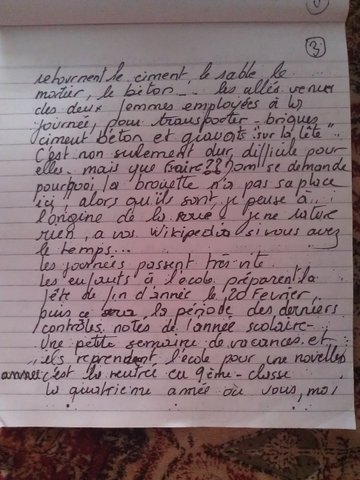 3
retournent le ciment, le sable, le
mortier, le béton... les allés venues
des deux femmes employées à la
journée, pour transporter - briques,
ciment béton et gravats "sur la tête".
C'est non seulement dur, difficile pour
elles. mais que faire?? on se demande
pourquoi la brouette n'a pas sa place
ici, alors qu'ils sont, je pense à
l'origine de la roue, je ne sature
rien, à vos Wikipedia si vous avez
le temps...
les journées passent très vite.
Les enfants à l'école préparent la
fête de fin d'année le 20 février,
puis ce sera la période des derniers
contrôles, notes de l'année scolaire -
Une petite semaine de vacances et
ils reprendront l'école pour une nouvelle
année c'est la rentrée en 9ème - classe
la quatrième année où vous, moi